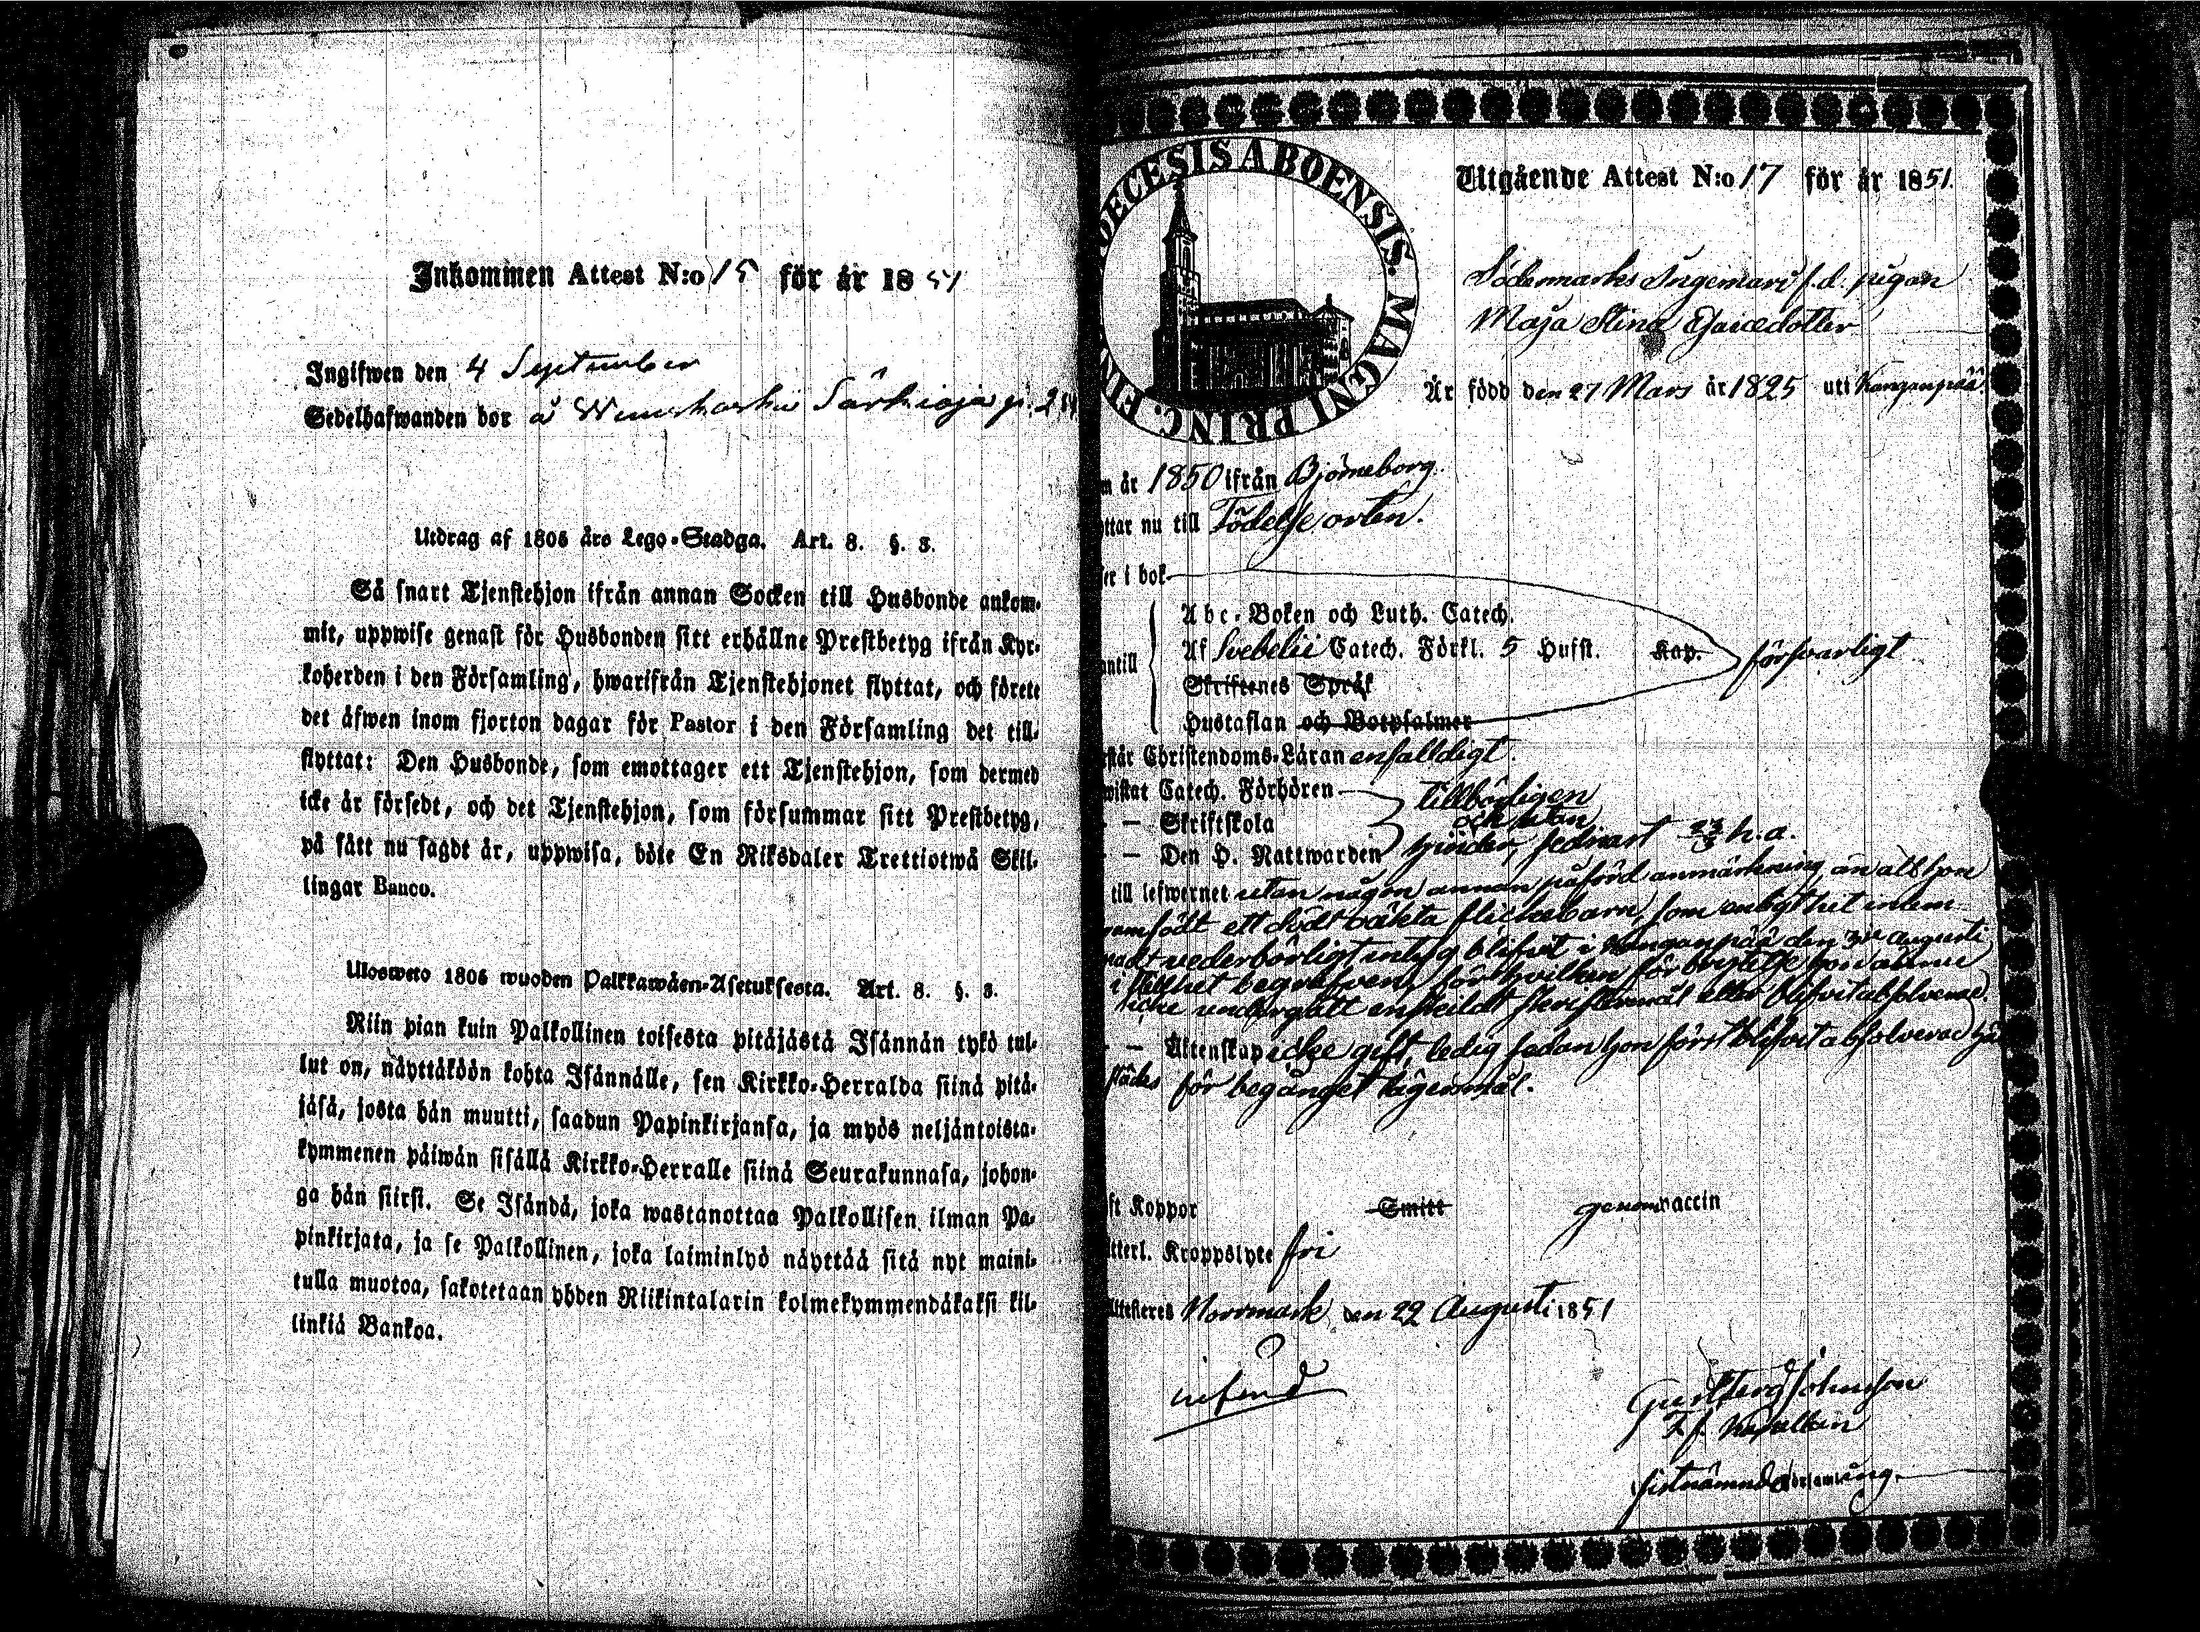 Inkommen Attest N:o 15 för år 1851
Ingifwen den 4 September
Sedelhafwanden bor å Särkioja
Utdrag af 1805 års Lego-Stadga. Art. 8. §. 3.
Så snart Tjenstehjon ifrån annan Socken till Husbonde ankom-
mit, uppwise genast för Husbonden sitt erhållne Prestbetyg ifrån Kyr-
koherden i den Församling, hwarifrån Tjenstehjonet flyttat, och förete
det äfwen inom fjorton dagar för Pastor i den Församling det till-
flyttat: Den Husbonde, som emottager ett Tjenstehjon, som dermed
icke är försedt, och det Tjenstehjon, som försummar sitt Prestbetyg,
på sätt nu sagdt är, uppwisa, böte En Riksdaler Trettiotwå Skil-
lingar Banco.
Ulosweto 1805 wuoden Palkkawäen-Asetuksesta. Art. 8. §. 3.
Niin pian kuin Palkollinen toisesta pitäjästä Isännän tykö tul-
lut on, näyttäköön kohta Isännälle, sen Kirkko-Herralda siinä pitä-
jäsä, josta hän muutti, saadun Papinkirjansa, ja myös neljäntoista-
kymmenen päiwän sisällä Kirkko-Herralle siinä Seurakunnasa, johon-
ga hän siirsi. Se Isändä, joka wastanottaa Palkollisen ilman Pa-
pinkirjata, ja se Palkollinen, joka laiminlyö näyttää sitä nyt maini-
tulla muotoa, sakotetaan yhden Riikintalarin kolmekymmendäkaksi kil-
linkiä Bankoa.
DECESIS ABOENSIS. MAGNI PRINC. FIN
Utgående Attest N:o 17 för år 1851.
Södermarks Ingemari f.d. pigan
Maja Stina Esaiædotter
Är född den 27 Mars år 1825 uti Kanganpää
m år 1850 ifrån Björneborg.
ttar nu till Födelse orten.
er i bok
Abc-Boken och Luth. Catech.
antill Af Svebelii Catech. Förkl. 5 Hufst. Kap. försvarligt
Skriftenes Språk
Hustaflan och Botpsalmer
står Christendoms-Läran enfalldigt.
wistat Catech. Förhören tillbörligen
— Skriftskola och utan
— Den H. Nattwarden hinder, sednast h.a.
till lefwernet utan någon annan påförd anmärkning, än att hon
framfödt ett dödt oäkta flickebarn, som enligt hit inlem-
nadt vederbörligt intyg blifvit i Kanganpää den Augusti
i stillhet begrafven, för hvilken förbrytelse hon ännu
icke undergått enskildt skriftermål eller blifvit absolverad.
— Äktenskap icke gift, ledig sedan hon först blifvit absolverad
städes för begånget lägersmål.
ft Koppor Smitt genom vaccin
tterl. Kroppslyte fri
Attesteres Norrmark den 22 Augusti 1851
Johnsson
T.f. Kapellan
sistnämnde Församling.